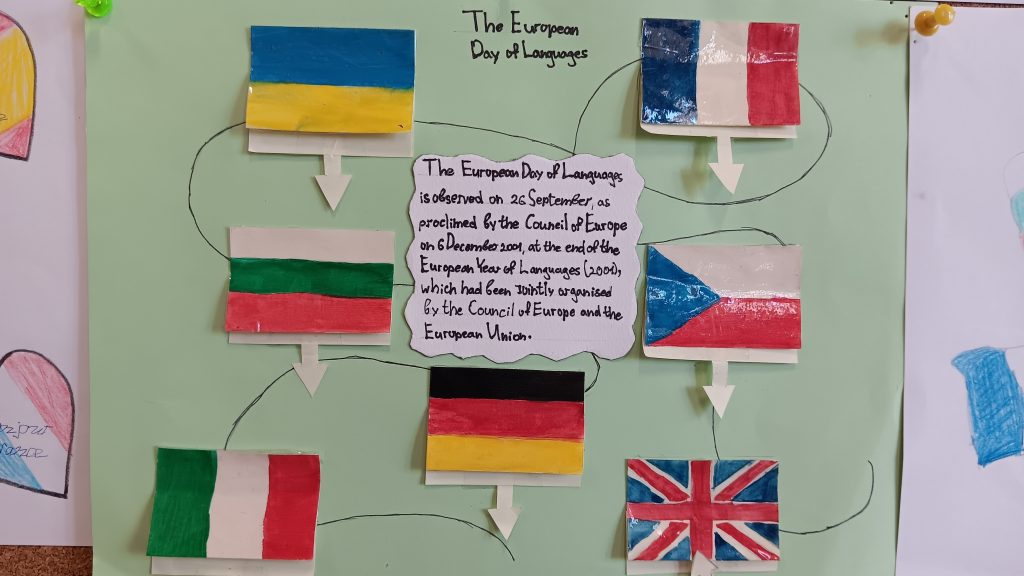 The European
Day of Languages
The European Day of Languages
is observed on 26 September, as
proclimed by the Council of Europe
on 6 December 2001, at the end of the
European Year of Languages (2001),
which had been Jointly organised
by the Council of Europe and the
European Union.